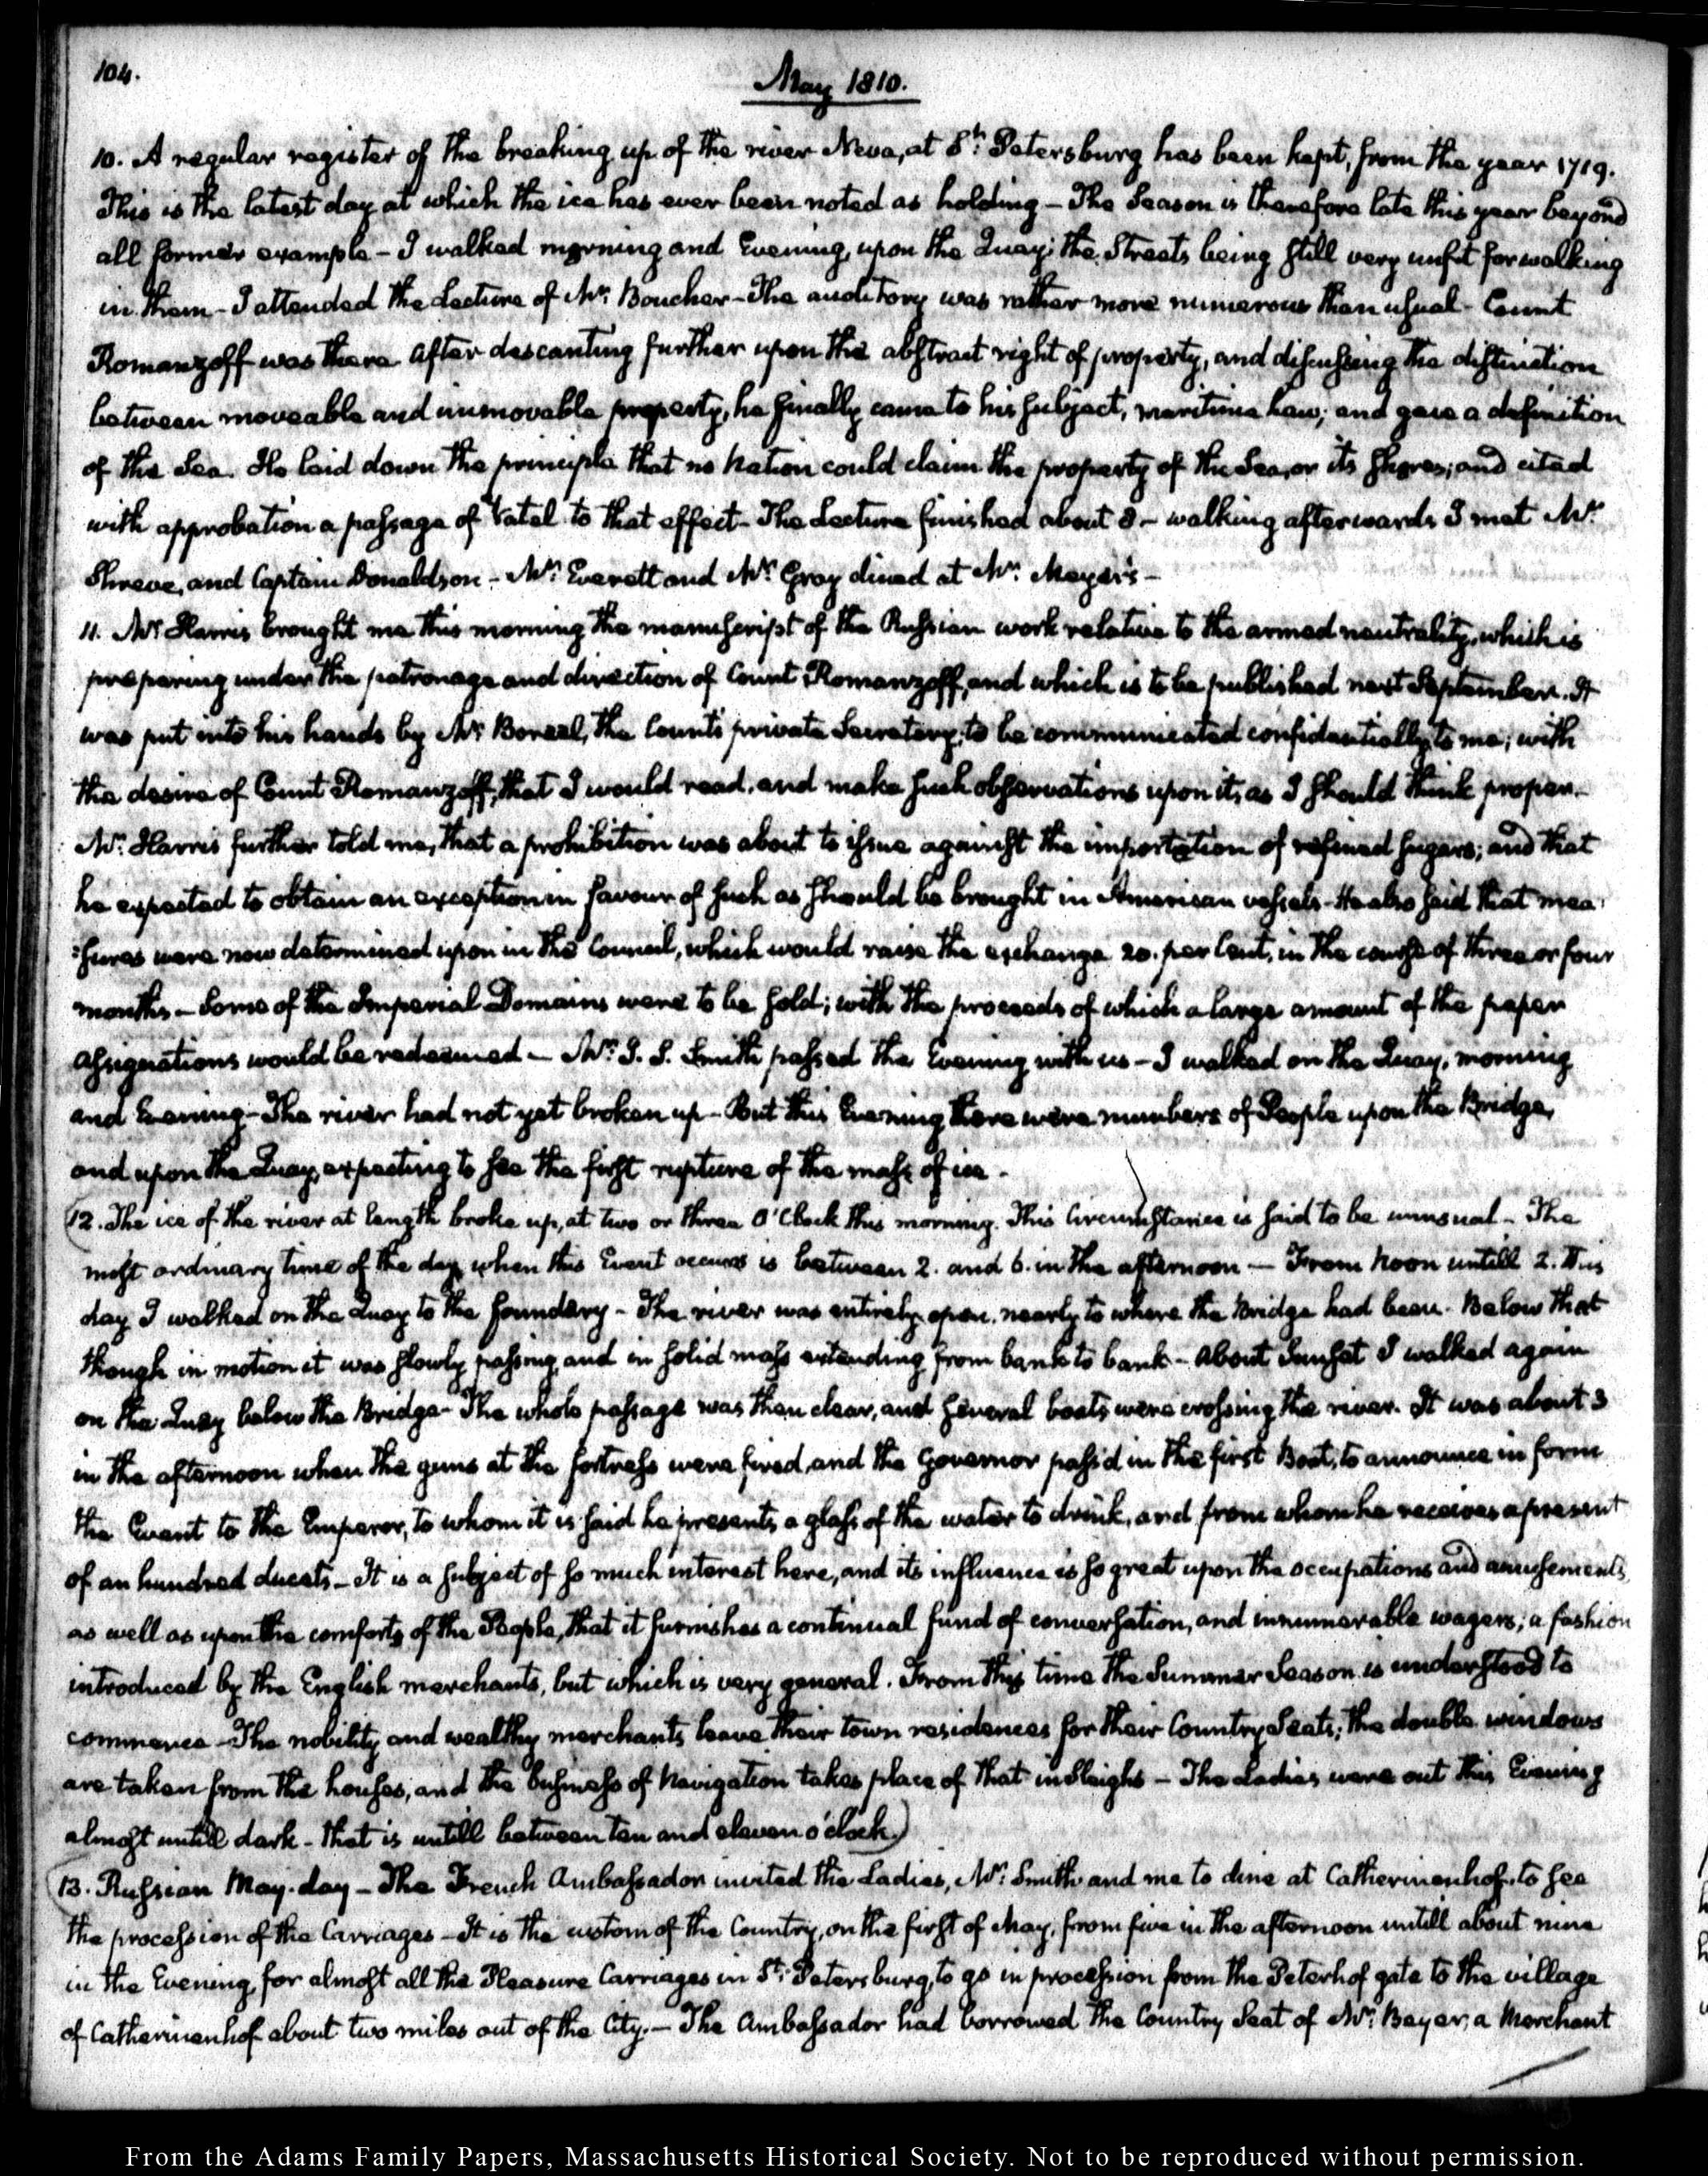 104.
May 1810.
10. A regular register of the breaking up of the river Neva, at St. Petersburg has been kept, from the year 1719.
This is the latest day at which the ice has ever been noted as holding – The Season is therefore late this year beyond
all former example – I walked morning and Evening, upon the Quay; the Streets being still very unfit for walking
in them – I attended the Lecture of Mr. Boucher – The auditory was rather more numerous than usual – Count
Romanzoff was there. After descanting further upon the abstract right of property, and discussing the distinction
between moveable and immovable property, he finally came to his subject, maritime Law; and gave a definition
of the Sea. He laid down the principle that no Nation could claim the property of the Sea, or its shores; and cited
with approbation a passage of Vatel to that effect – The Lecture finished about 8 – walking afterwards I met Mr.
Shreve, and Captain Donaldson – Mr. Everett and Mr. Gray dined at Mr. Meyer's –
11. Mr. Harris brought me this morning the manuscript of the Russian work relative to the armed neutrality, which is
preparing under the patronage and direction of Count Romanzoff, and which is to be published next September. It
was put into his hands by Mr. Boreal, the Count's private Secretary, to be communicated confidentially to me; with
the desire of Count Romanzoff, that I would read, and make such observations upon it, as I should think proper. –
Mr. Harris further told me, that a prohibition was about to issue against the importation of refined sugars; and that
he expected to obtain an exception in favour of such as should be brought in American vessels – He also said that mea
:sures were now determined upon in the Council, which would raise the exchange 20. per Cent, in the course of three or four
months – Some of the Imperial Domains were to be sold; with the proceeds of which a large amount of the paper
assignations would be redeemed – Mr. J. S. Smith passed the Evening with us – I walked on the Quay, morning
and Evening – The river had not yet broken up – But this Evening there were numbers of People upon the Bridge,
and upon the Quay, expecting to see the first rupture of the mass of ice –
(12. The ice of the river at length broke up, at two or three O'Clock this morning. This Circumstance is said to be unusual – The
most ordinary time of the day, when this Event occurs is between 2. and 6. in the afternoon – From Noon untill 2. this
day I walked on the Quay to the foundery – The river was entirely open, nearly to where the Bridge had been. Below that
though in motion it was slowly passing, and in solid mass extending from bank to bank – About Sunset I walked again
on the Quay below the Bridge – The whole passage was then clear, and several boats were crossing the river. It was about 3
in the afternoon when the guns at the fortress were fired, and the Governor pass'd in the first Boat, to announce in form
the Event to the Emperor, to whom it is said he presents a glass of the water to drink, and from whom he receives a present
of an hundred ducats – It is a subject of so much interest here, and its influence is so great upon the occupations and amusements
as well as upon the comforts of the People, that it furnishes a continual fund of conversation, and innumerable wagers; a fashion
introduced by the English merchants, but which is very general. From this time the Summer Season is understood to
commence – The nobility and wealthy merchants leave their town residences for their Country Seats; the double windows
are taken from the houses, and the business of Navigation takes place of that in Sleighs – The Ladies were out this Evening
almost untill dark – that is untill between ten and eleven o'clock.)
(13. Russian May-day – The French Ambassador invited the Ladies, Mr. Smith and me to dine at Catherinenhof, to see
the procession of the Carriages – It is the custom of the Country, on the first of May, from five in the afternoon untill about nine
in the Evening, for almost all the Pleasure Carriages in St. Petersburg, to go in procession from the Peterhof gate to the village
of Catherinenhof about two miles out of the City. – The Ambassador had borrowed the Country Seat of Mr. Beyer, a Merchant
From the Adams Family Papers, Massachusetts Historical Society. Not to be reproduced without permission.